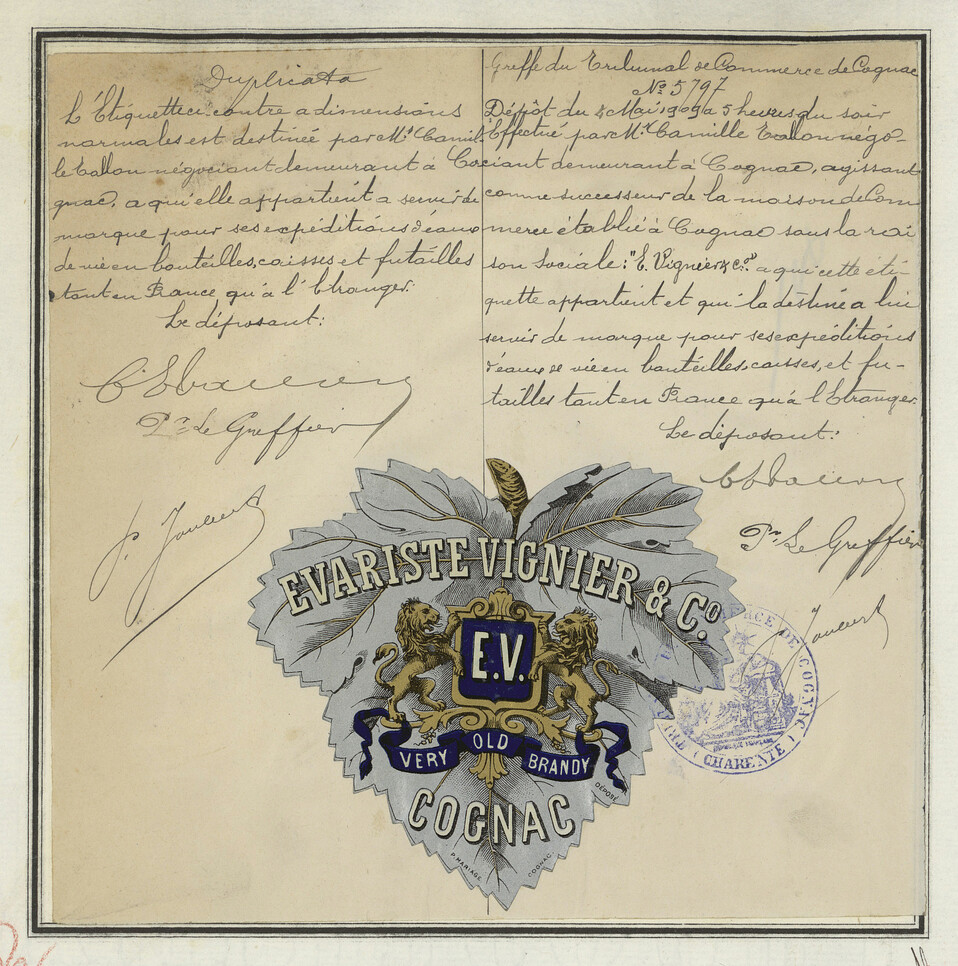 Duplicata
L'Etiquette ci-contre a dimensions
normales est destinée par Mr. Camil-
le Tallon négociant demeurant à Co-
gnac, a qui elle appartient a servir de
marque pour ses expéditions d'eaux
de vie en bouteilles, caisses et futailles
tant en France qu'à l'Etranger.
Le déposant:
Pr. Le Greffier
Greffe du Tribunal de Commerce de Cognac
No. 5797
Dépôt du 4 Mai 1909 à 5 heures du soir
Effectué par Mr. Camille Tallon négo-
ciant demeurant à Cognac, agissant
comme successeur de la maison de Com
merce établie à Cognac sous la rai
son Sociale: "E. Vignier & Co." a qui cette éti-
quette appartient et qui la destine a lui
servir de marque pour ses expéditions
d'eaux de vie en bouteilles, caisses, et fu-
tailles tant en France qu'à l'Etranger.
Le déposant:
Pr. Le Greffier
EVARISTE VIGNIER & Co.
E.V.
VERY OLD BRANDY
COGNAC
DÉPOSÉ
P. MARIAGE COGNAC
COMMERCE DE COGNAC
(CHARENTE)